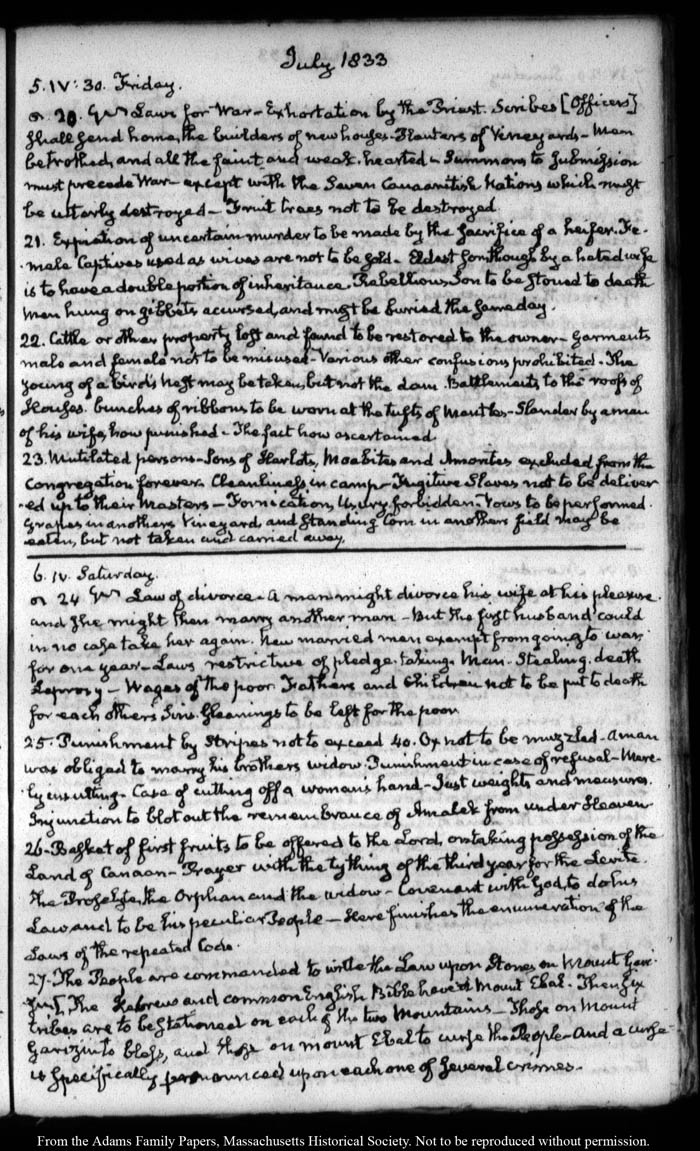 July 1833
5. IV: 30. Friday.
20. Laws for War - Exhortation by the Priest. Scribes [Officers]
shall send home, the builders of new houses - Planters of Vineyards - Men
betrothed, and all the faint and weak-hearted - Summons to Submission
must precede War - except with the Seven Canaanitish Nations which must
be utterly destroyed - Fruit trees not to be destroyed.
21. Expiation of uncertain murder to be made by the sacrifice of a heifer. Fe-
male Captives used as wives are not to be sold - Eldest Son though by a hated wife
is to have a double portion of inheritance. Rebellious Son to be stoned to death
Men hung on gibbets accursed, and must be buried the same day.
22. Cattle or other property lost and found to be restored to the owner - Garments
male and female not to be misused - Various other confusions prohibited - The
young of a bird's nest may be taken, but not the dam. Battlements to the roofs of
Houses. bunches of ribbons to be worn at the tufts of Mantles - Slander by a man
of his wife, how punished - The fact how ascertained
23. Mutilated persons - Sons of Harlots, Moabites and Amonites excluded from the
Congregation forever. Cleanliness in camp - Fugitive Slaves not to be deliver
-ed up to their Masters - Fornication, Usury forbidden. Vows to be performed.
Grapes in anothers Vineyard, and standing Corn in anothers field may be
eaten, but not taken and carried away.
6. IV. Saturday.
24 Law of divorce - A man might divorce his wife at his pleasure.
and she might then marry another man - But the first husband could
in no case take her again. New married men exempt from going to war,
for one year - Laws restrictive of pledge-taking. Man-Stealing, death
Leprosy - Wages of the poor. Fathers and Children not to be put to death
for each others Sins. Gleanings to be left for the poor
25. Punishment by Stripes not to exceed 40. Ox not to be muzzled. A man
was obliged to marry his brothers widow. Punishment in case of refusal - Mere-
ly insulting - Case of cutting off a womans hand - Just weights and measures.
Injunction to blot out the remembrance of Amalek from under Heaven
26 - Basket of first fruits to be offered to the Lord, on taking possession of the
Land of Canaan - Prayer with the tything of the third year for the Levite.
the Proselyte, the Orphan and the widow - Covenant with God, to do his
Law and to be his peculiar People - Here finishes the enumeration of the
Laws of the repeated Code.
27. The People are commanded to write the Law upon Stones on Mount Gari-
The Hebrew and common English Bible have it Mount Ebal. Then six
tribes are to be stationed on each of the two Mountains - Those on Mount
Garizin to bless, and those on mount Ebal to curse the People - And a curse
is specifically pronounced upon each one of several crimes.
From the Adams Family Papers, Massachusetts Historical Society. Not to be reproduced without permission.